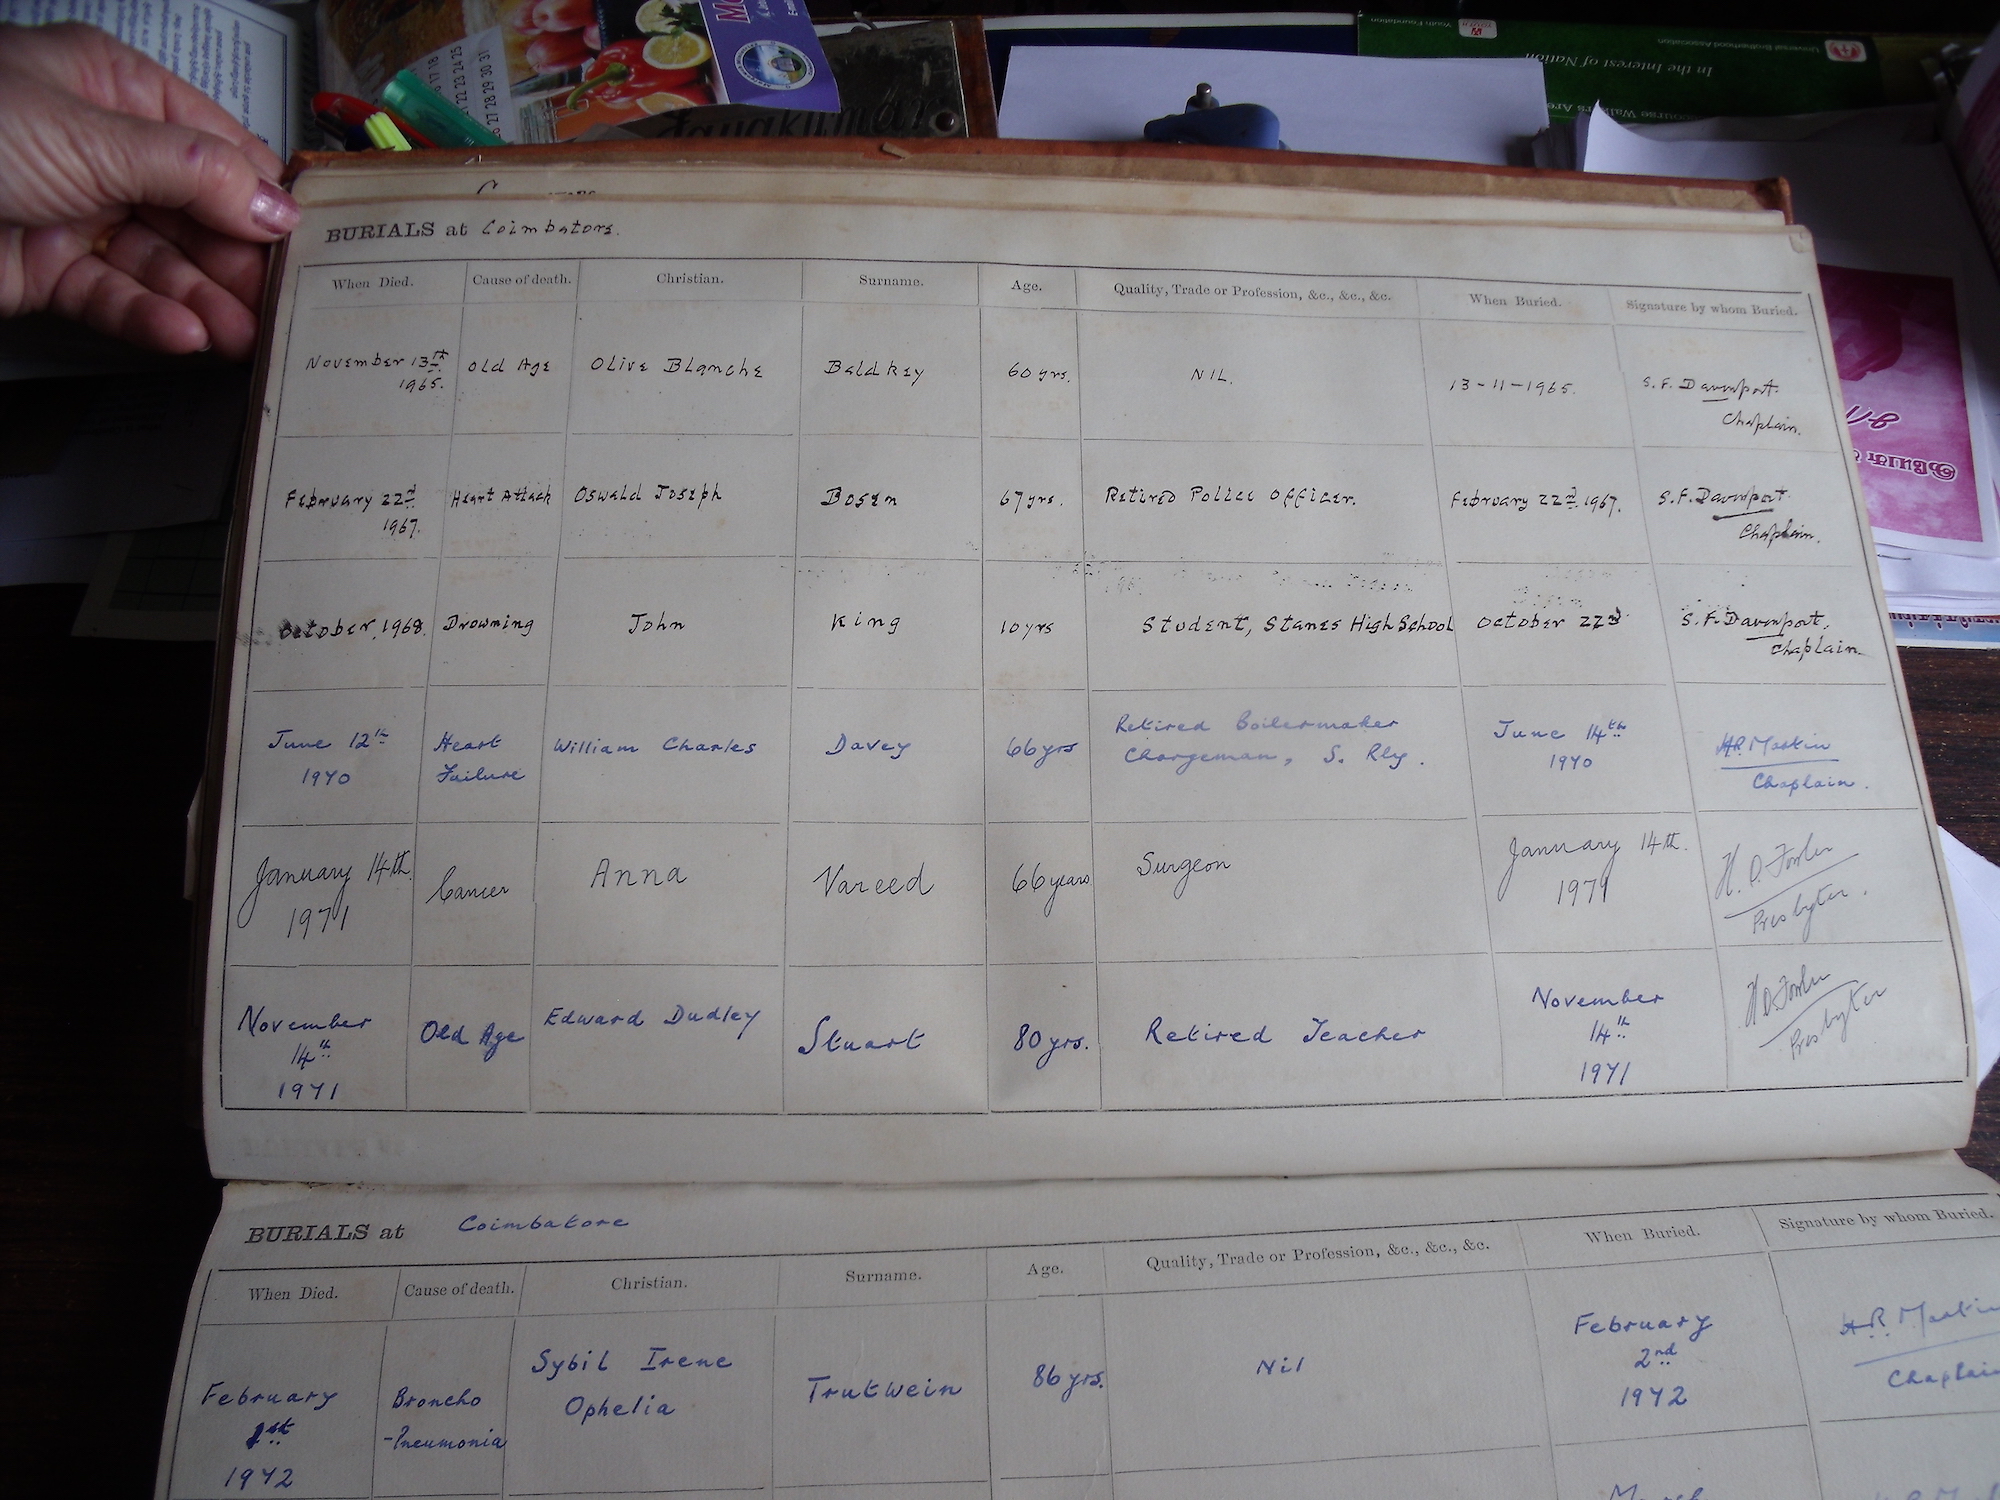 17 18
22 23 24 25
26 27 28 29 30 31
Jayakumar
Youth Foundation
Universal Brotherhood Association
In the Interest of Nation
BURIALS at Coimbatore.
When Died. Cause of death. Christian. Surname. Age. Quality, Trade or Profession, &c., &c., &c. When Buried. Signature by whom Buried.
November 13th Old Age Olive Blanche Baldkey 60 yrs. NIL. 13-11-1965. S. F. Davenport.
1965. Chaplain.
February 22nd Heart Attack Oswald Joseph Bosen 67 yrs. Retired Police Officer. February 22nd. 1967. S. F. Davenport.
1967. Chaplain.
October, 1968. Drowning John King 10 yrs Student, Stanes High School October 22nd S. F. Davenport.
Chaplain.
June 12th Heart William Charles Davey 66 yrs Retired Boilermaker June 14th H.R. Martin
1970 Failure Chargeman, S. Rly. 1970 Chaplain.
January 14th. Cancer Anna Vareed 66 years Surgeon January 14th.
1971 1971 Presbyter.
November Old Age Edward Dudley Stuart 80 yrs. Retired Teacher November
14th 14th Presbyter
1971 1971
BURIALS at Coimbatore
When Died. Cause of death. Christian. Surname. Age. Quality, Trade or Profession, &c., &c., &c. When Buried. Signature by whom Buried.
February Broncho Sybil Irene Trutwein 86 yrs. Nil February H.R. Martin
1st -Pneumonia Ophelia 2nd Chaplain
1972 1972
March